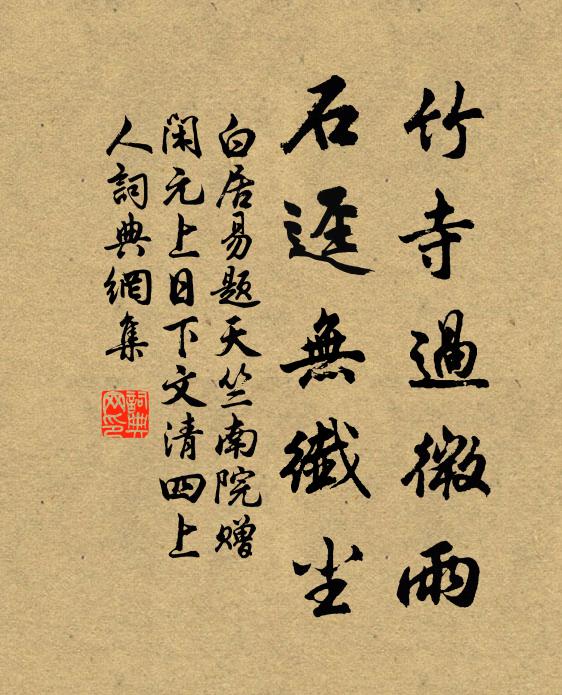 竹寺過微雨
石逕無纖尘
白居易题天竺南院赠
閑元上日下文清四上
人詞典網集
詞典
网印